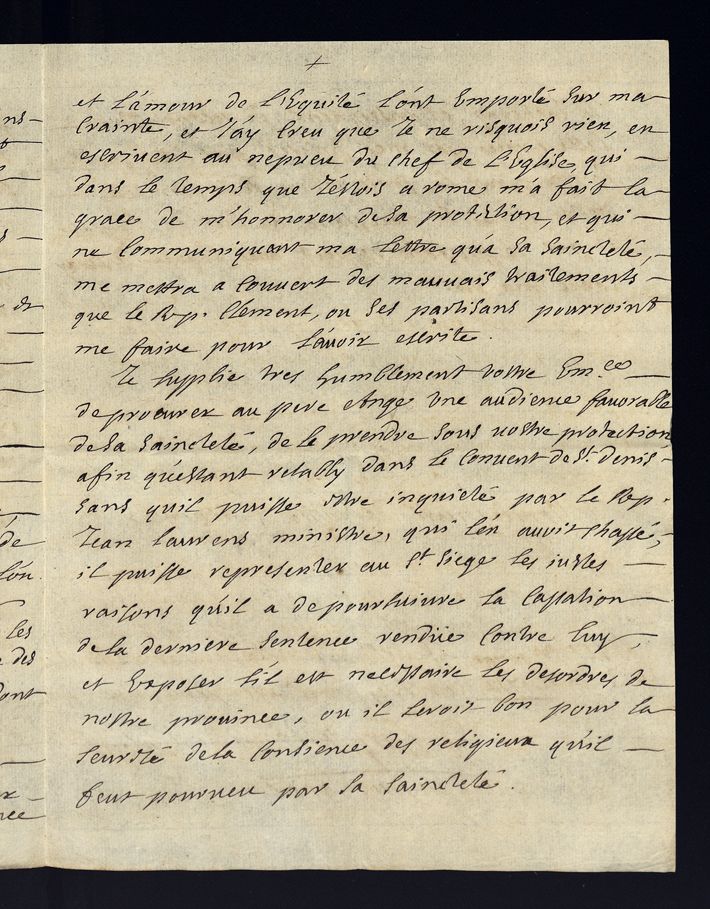 +
et L'amour de L'Equité l'ont Emporté sur ma
Crainte, et J'ay Creu que Je ne risquois rien, en
escrivent au nepveu du chef de L'Eglise qui
dans le temps que J'estois a rome m'a fait la
grace de m'honnorer de sa protection, et qui
ne Communiquant ma Lettre qu'a sa saincteté,
me mettra a Couvert des mauvais traitements
que le R.p. Clement, ou ses partisans pourroint
me faire pour L'avoir escrite.
Je supplie tres humblement vostre Em.ce
de procurer au pere Ange Une audience favorable
de sa saincteté, de le prendre sous vostre protection
afin qu'estant retably dans le Convent de St. Denis
sans quil puisse estre inquieté par le Rp.
Jean Laurens ministre, qui l'en avoit chassé,
il puisse representer au St Siege les iustes
raisons qu'il a de poursuivre la Cassation
de la derniere sentence rendüe Contre luy,
et Exposer s'il est necessaire les desordres de
nostre province, ou il seroit bon pour la
seureté de la Consience des religieux qu'il
feut pourveu par sa saincteté.
ns
et
de
l'on
les
e des
dont